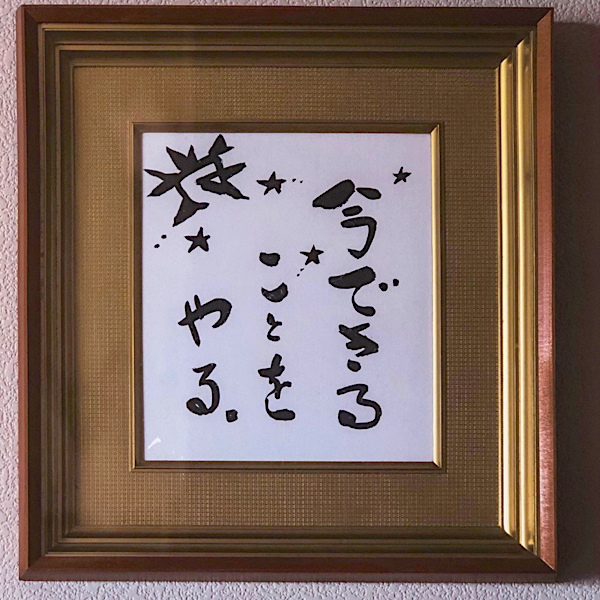 今できる
ことを
やる。